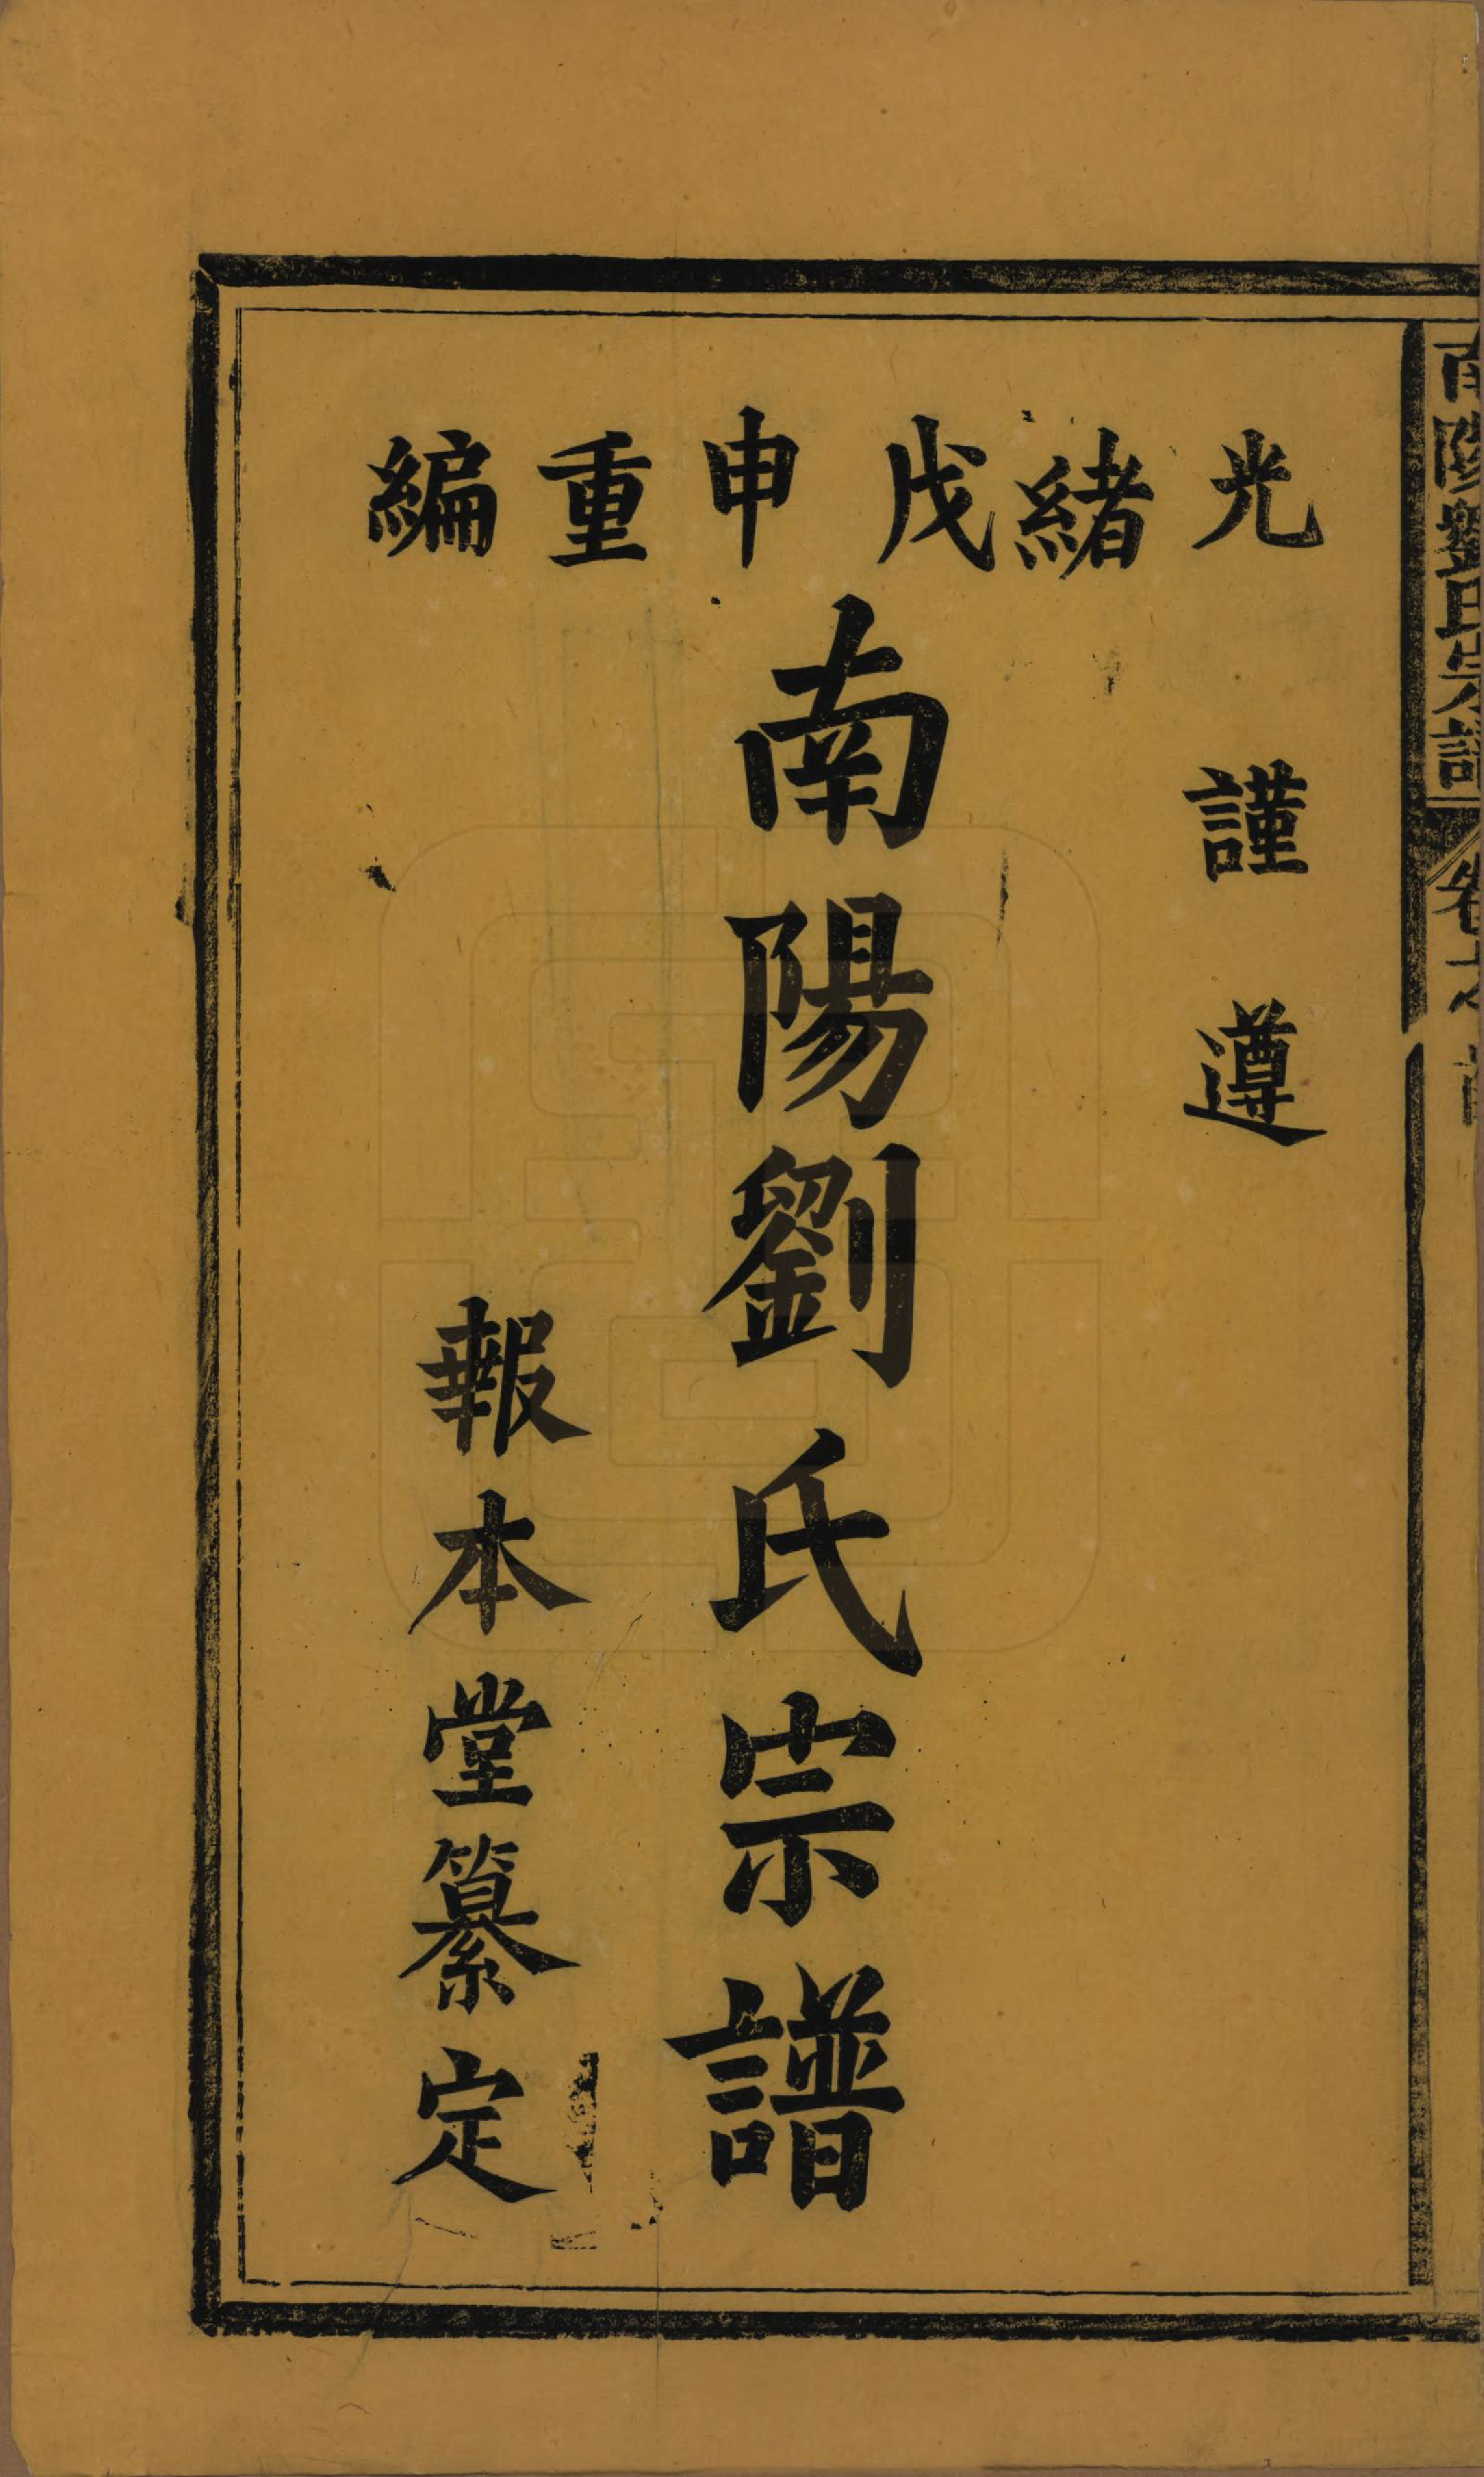 光緒戊申重編
謹遵
南陽劉氏宗譜
報本堂纂定
南陽劉氏宗譜
卷之首